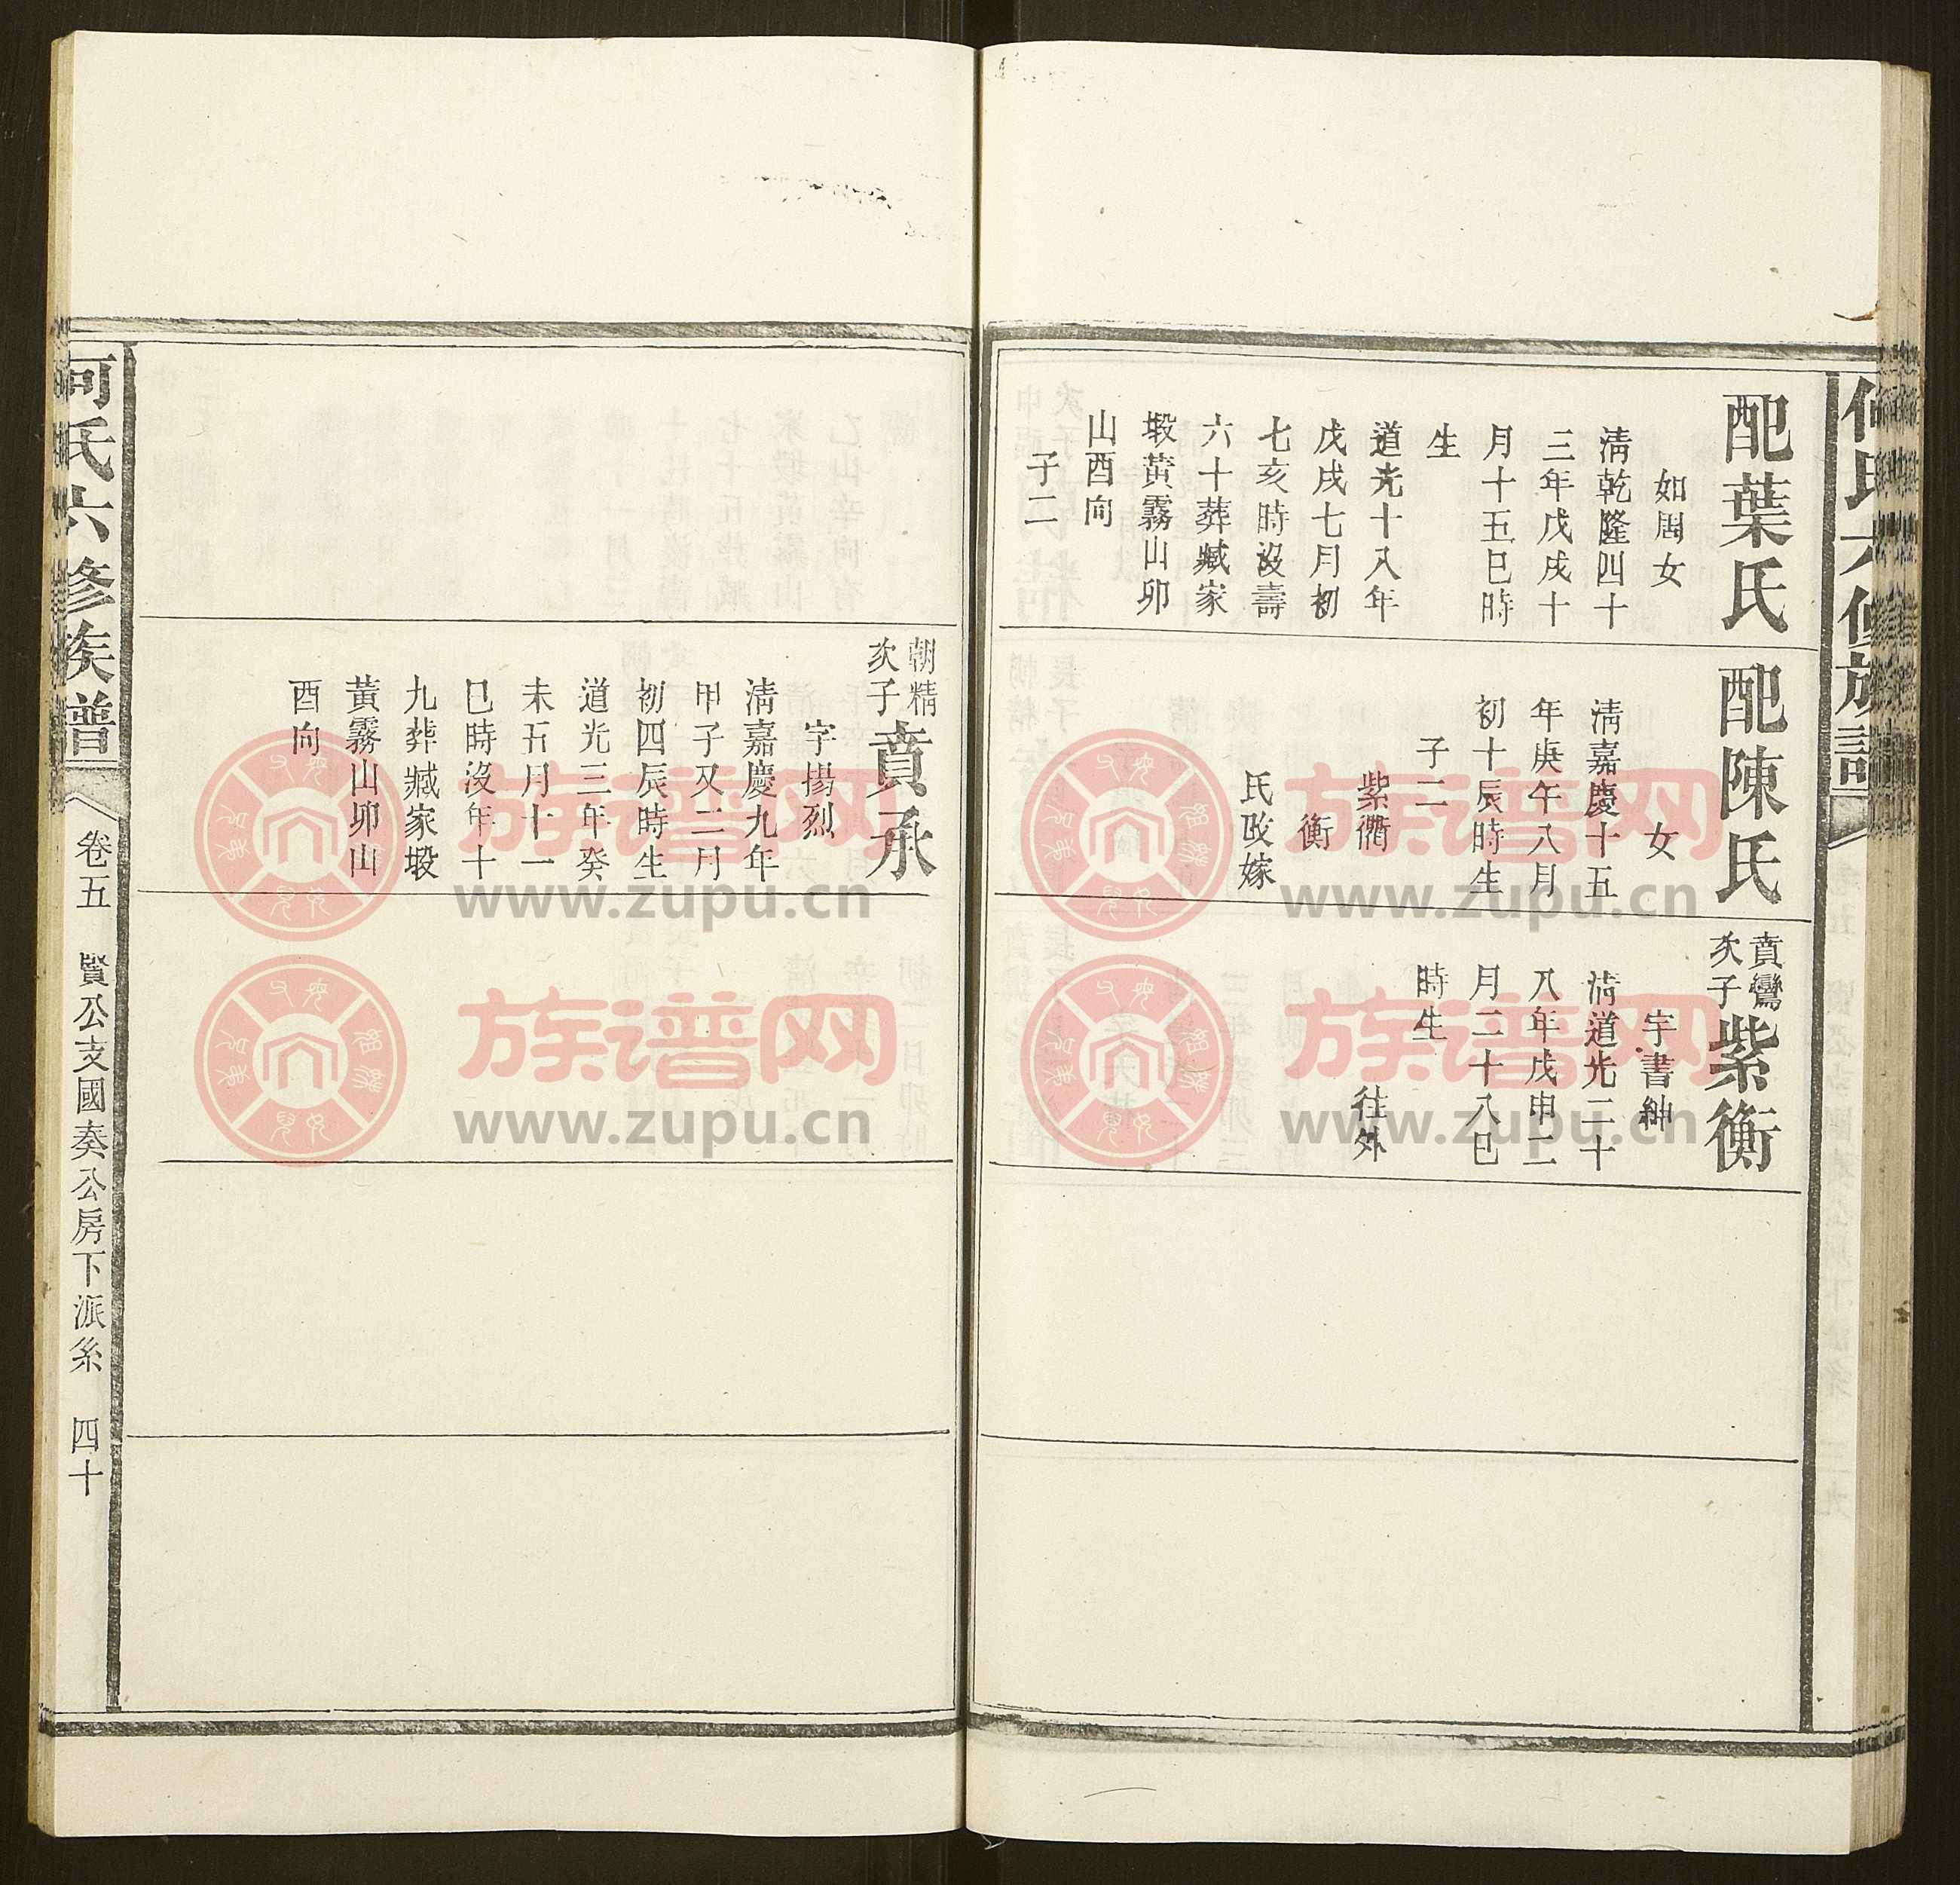 何氏六修族譜
配葉氏
如周女
清乾隆四十
三年戊戌十
月十五巳時
生
道光十八年
戊戌七月初
七亥時沒壽
六十葬臧家
塅黃霧山卯
山酉向
子二
配陳氏
女
清嘉慶十五
年庚午八月
初十辰時生
子二
紫衢
衡
氏改嫁
賁鸞
次子
紫衡
字書紳
清道光二十
八年戊申二
月二十八巳
時生
往外
朝精
次子
賁承
字揚烈
清嘉慶九年
甲子又二月
初四辰時生
道光三年癸
未五月十一
巳時沒年十
九葬臧家塅
黃霧山卯山
酉向
何氏六修族譜
卷五
賢公支國奏公房下派系
四十
族谱网
www.zupu.cn
族谱网
www.zupu.cn
族谱网
www.zupu.cn
族谱网
www.zupu.cn